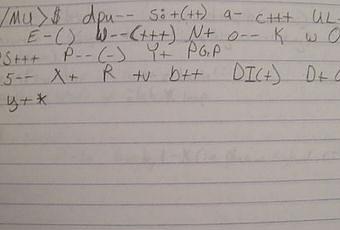 /MU>$ dpu-- s:+(++) a- c+++ UL-
E-() W--(+++) N+ o-- K w O
PS+++ P--(-) Y+ PGP
5-- X+ R +v b++ DI(+) D+ G
y+*